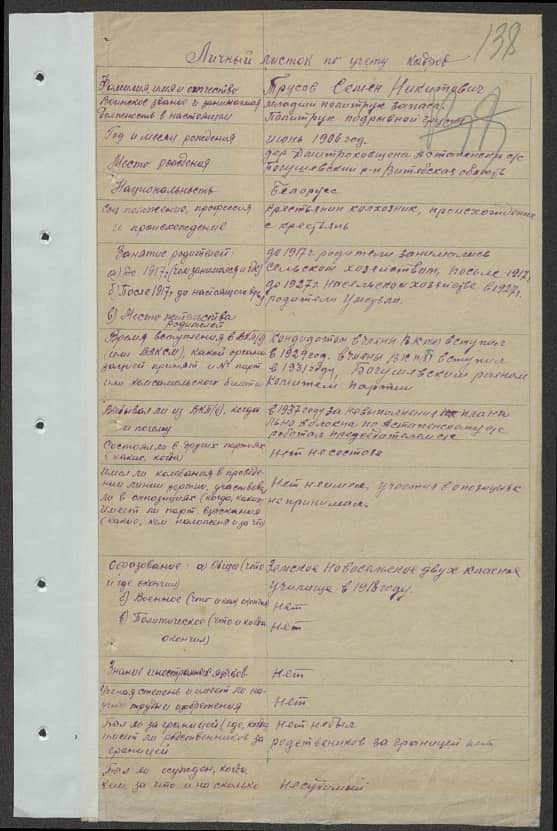 138
Личный листок по учету кадров
Фамилия, имя и отчество Трусов Семен Никитович
Воинское звание и занимаемая младший политрук запаса.
должность в настоящем Политрук подрывной группы
Год и месяц рождения июнь 1906 год.
Место рождения дер. Дмитроковщина Астапенски с/с
Богушевский р-н Витебская область
Национальность Беларус
Соц положение, профессия крестьянин колхозник, происхождение
и происхождение с крестьян
Занятие родителей: до 1917 г. родители занимались
а) До 1917г. (чем занимался и где) сельской хозяйствам, после 1917г.
б) После 1917г. до настоящего вре. до 1927г. на сельском хозяйстве в 1927г.
родители умерли.
в) Место жительства
родителей
Время вступления в ВКП(б) Кандидатом в члени ВКП(б) вступил
(или ВЛКСМ), какой органи в 1929 год. в члени ВКП(б) вступил
зацией принят и № парт в 1931 году, Богушевским районом
или комсомольского билета комитет партии
Выбывал ли из ВКП(б), когда в 1937 году за невиполнения плана
и почему льно волокна по Астапенскому с/с
работал председателем с/с
Состоял ли в других партиях Нет не состоял
(каких, когда)
Имел ли колебания в проведе Нет не имел, участия в опозициях
нии линии партии, участвовал не принимал.
ли в оппозициях (когда, каких)
Имеет ли парт. взыскания
(какие, кем наложена и за что)
Образование: а) Общее (что Земское Новосельское двух класное
и где окончил) училище в 1918 году.
б) Военное (что и как окончил) нет
в) Политическое (что и когда нет
окончил)
Знание иностранных языков Нет
Ученая степень и имеет ли на- Нет
учные труды и изобретения
Был ли за границей (где, когда Нет небыл
имеет ли родственников за родствеников за границей нет
границей
Был ли осужден, когда,
кем, за что и на сколько Несудимый